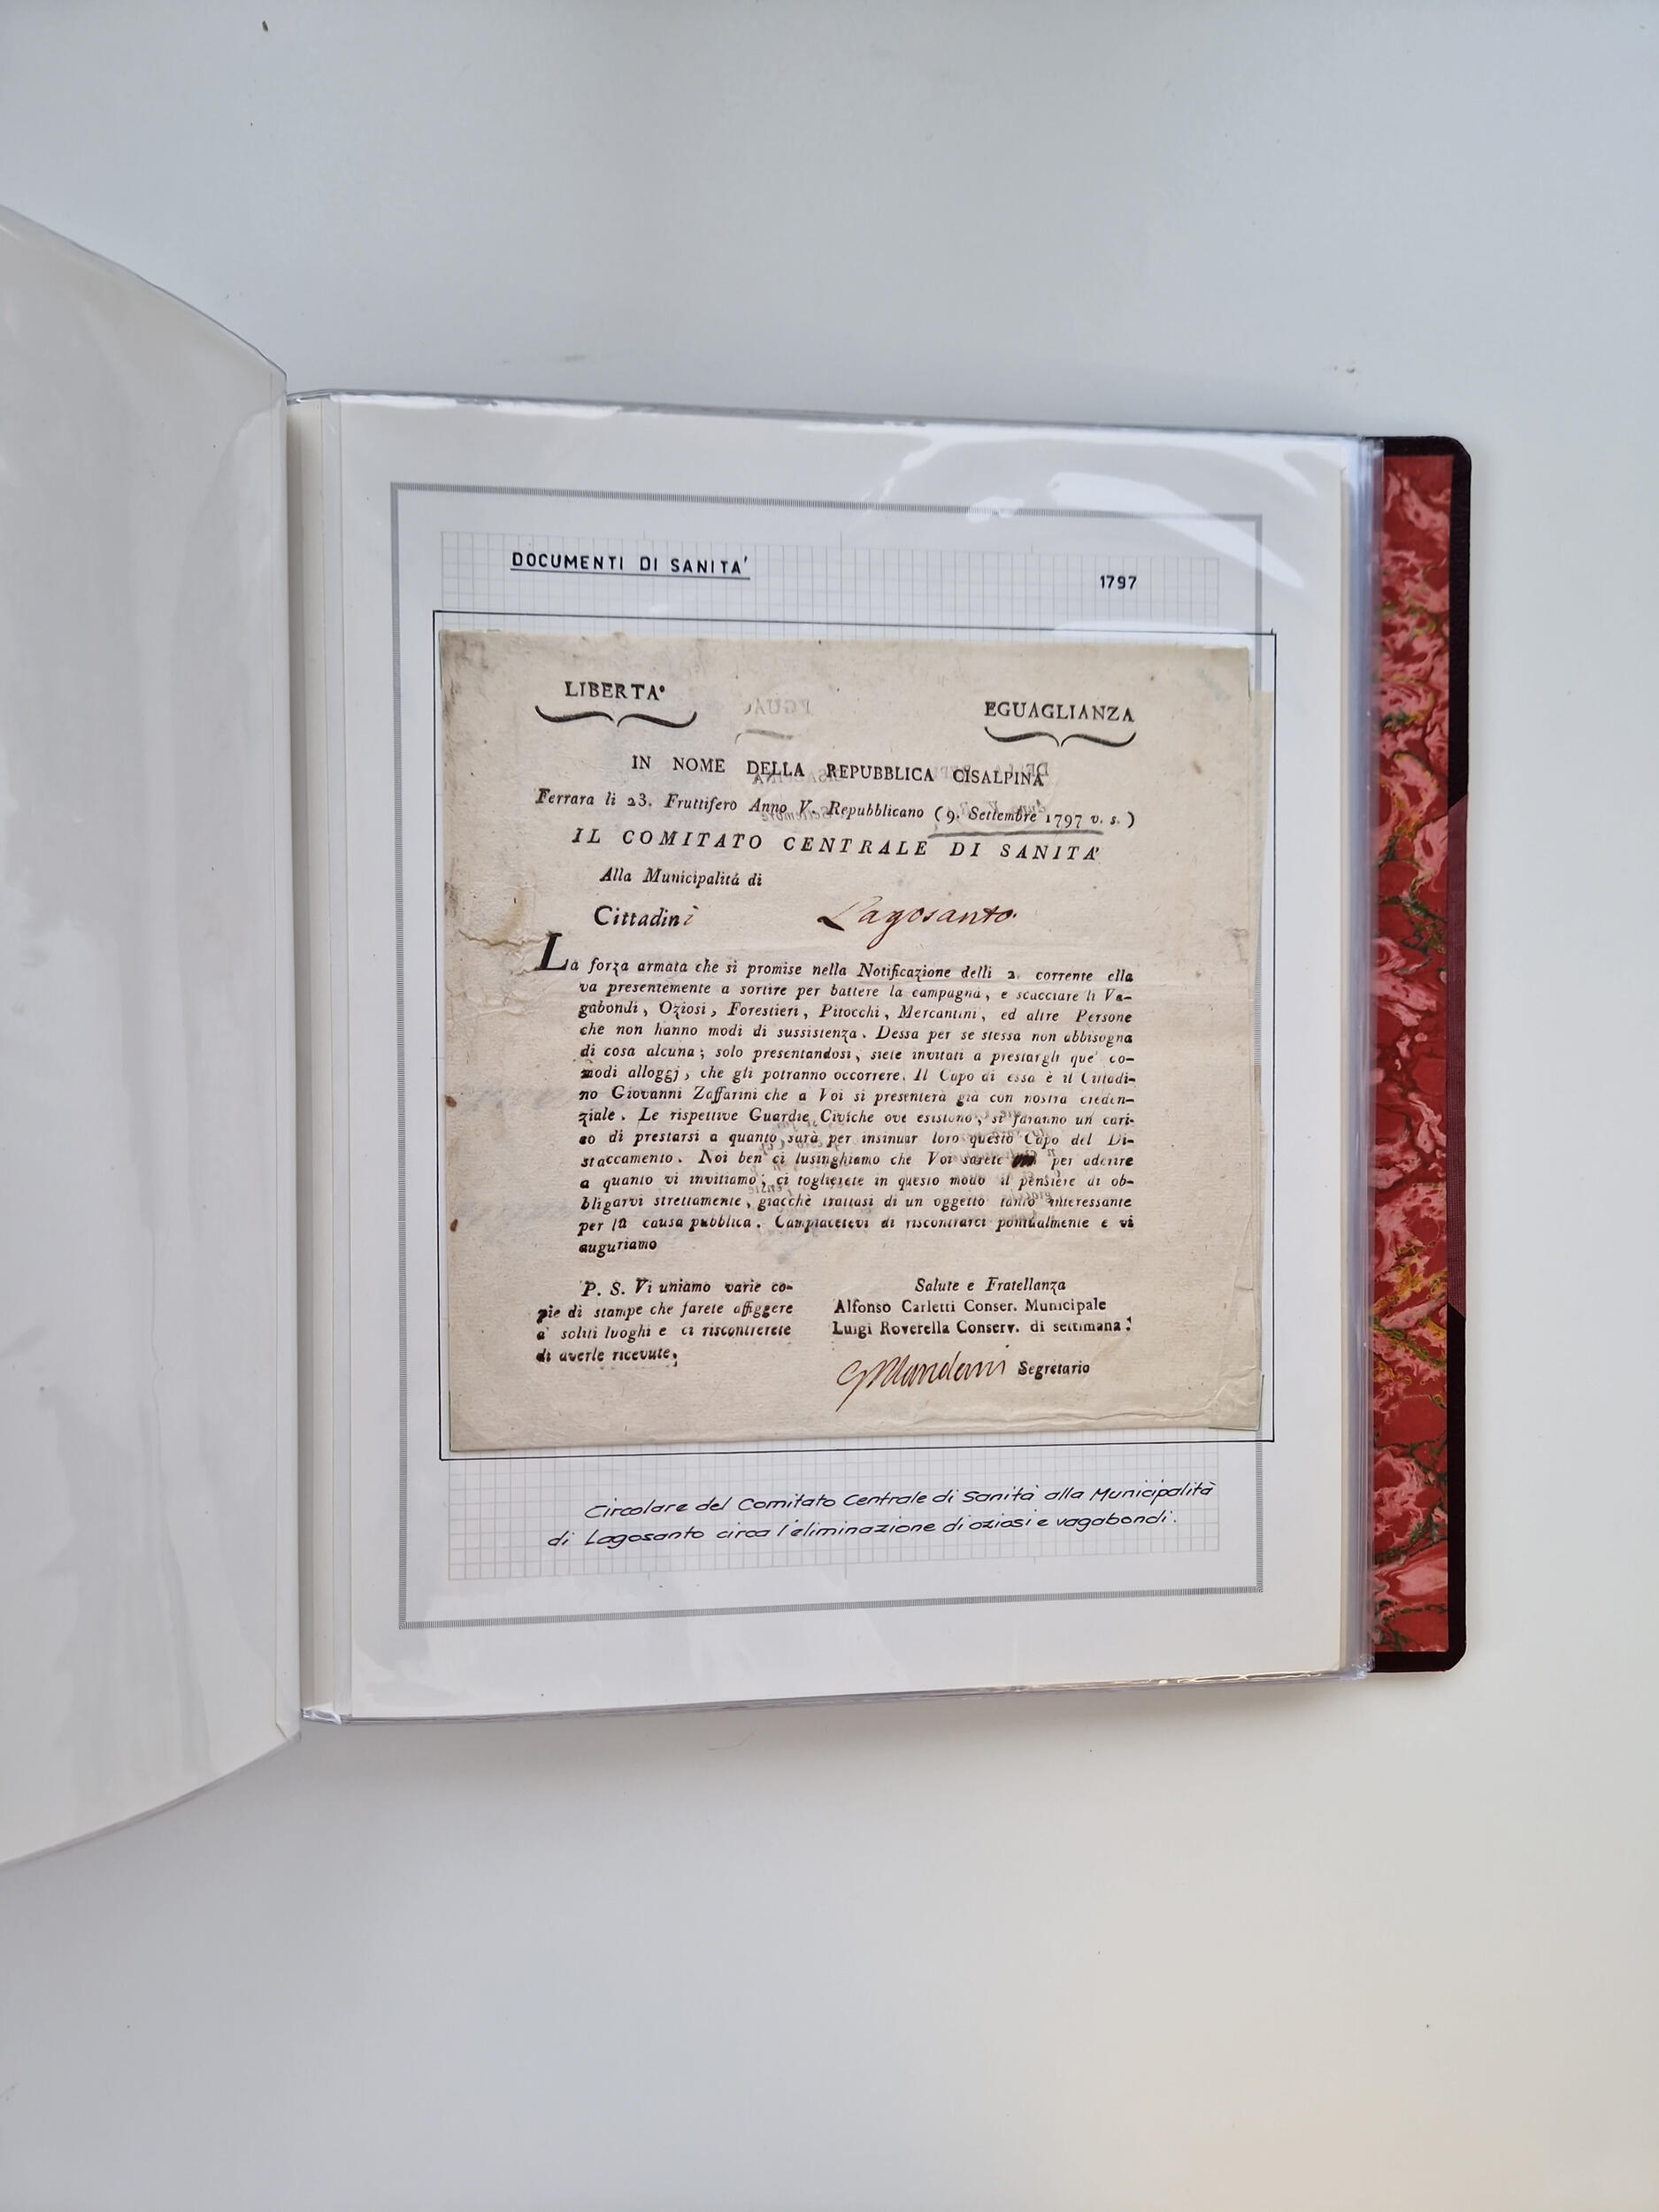 DOCUMENTI DI SANITA'
1797
LIBERTA'
EGUAGLIANZA
IN NOME DELLA REPUBBLICA CISALPINA
Ferrara li 23. Fruttifero Anno V. Repubblicano ( 9. Settembre 1797 v. s. )
IL COMITATO CENTRALE DI SANITA'
Alla Municipalitá di
Cittadini Lagosanto
La forza armata che si promise nella Notificazione delli 2. corrente ella
va presentemente a sortire per battere la campagna, e scacciare li Va-
gabondi, Oziosi, Forestieri, Pitocchi, Mercantini, ed altre Persone
che non hanno modi di sussistenza. Dessa per se stessa non abbisogna
di cosa alcuna; solo presentandosi, siete invitati a prestargli que' co-
modi alloggj, che gli potranno occorrere. Il Capo di essa è il Cittadi-
no Giovanni Zaffarini che a Voi si presenterà già con nostra creden-
ziale. Le rispettive Guardie Civiche ove esistono, si faranno un cari-
co di prestarsi a quanto sarà per insinuar loro questo Capo del Di-
staccamento. Noi ben ci lusinghiamo che Voi sarete per aderire
a quanto vi invitiamo; ci toglierete in questo modo il pensiere di ob-
bligarvi strettamente, giacchè trattasi di un oggetto tanto interessante
per la causa pubblica. Campiacetevi di riscontrarci pontualmente e vi
auguriamo
P. S. Vi uniamo varie co-
pie di stampe che farete affiggere
a' soliti luoghi e ci riscontrerete
di averle ricevute.
Salute e Fratellanza
Alfonso Carletti Conser. Municipale
Luigi Roverella Conserv. di settimana:
Segretario
Circolare del Comitato Centrale di Sanità alla Municipalità
di Lagosanto circa l'eliminazione di oziosi e vagabondi.